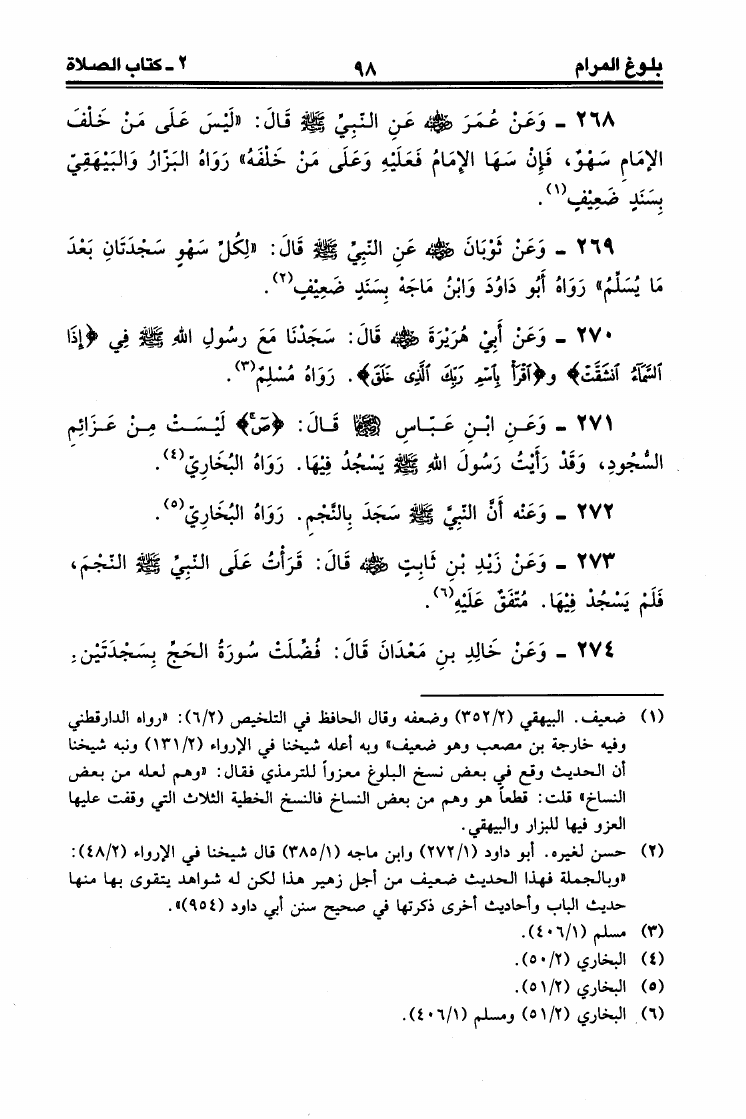 بلوغ المرام ٩٨ ٢ ـ كتاب الصلاة
٢٦٨ ـ وَعَنْ عُمَرَ رضي الله عنه عَنِ النَّبِيِّ ﷺ قَالَ: «لَيْسَ عَلَى مَنْ خَلْفَ
الإمَامِ سَهْوٌ، فَإِنْ سَهَا الإمَامُ فَعَلَيْهِ وَعَلَى مَنْ خَلْفَهُ» رَوَاهُ البَزَّارُ وَالبَيْهَقِيّ
بِسَنَدٍ ضَعِيْفٍ(١).
٢٦٩ ـ وَعَنْ ثَوْبَانَ رضي الله عنه عَنِ النَّبِيِّ ﷺ قَالَ: «لِكُلِّ سَهْوٍ سَجْدَتَانِ بَعْدَ
مَا يُسَلِّمُ» رَوَاهُ أَبُو دَاوُدَ وَابْنُ مَاجَهْ بِسَنَدٍ ضَعِيْفٍ(٢).
٢٧٠ ـ وَعَنْ أَبِيْ هُرَيْرَةَ رضي الله عنه قَالَ: سَجَدْنَا مَعَ رسُولِ اللهِ ﷺ فِي ﴿إِذَا
ٱلسَّمَآءُ ٱنشَقَّتْ﴾ و﴿ٱقْرَأْ بِٱسْمِ رَبِّكَ ٱلَّذِى خَلَقَ﴾. رَوَاهُ مُسْلِمٌ(٣).
٢٧١ ـ وَعَـنِ ابْـنِ عَـبّـاسٍ رضي الله عنهما قَـالَ: ﴿صٓ﴾ لَيْـسَـتْ مِـنْ عَـزَائِمِ
السُّجُودِ، وَقَدْ رَأَيْتُ رَسُولَ اللهِ ﷺ يَسْجُدُ فِيْهَا. رَوَاهُ البُخَارِيّ(٤).
٢٧٢ ـ وَعَنْه أَنَّ النَّبِيَّ ﷺ سَجَدَ بِالنَّجْمِ. رَوَاهُ البُخَارِيّ(٥).
٢٧٣ ـ وَعَنْ زَيْدِ بْنِ ثَابِتٍ رضي الله عنه قَالَ: قَرَأْتُ عَلَى النَّبِيِّ ﷺ النَّجْمَ،
فَلَمْ يَسْجُدْ فِيْهَا. مُتّفَقٌ عَلَيْهِ(٦).
٢٧٤ ـ وَعَنْ خَالِدِ بنِ مَعْدَانَ قَالَ: فُضِّلَتْ سُورَةُ الحَجِّ بِسَجْدَتَيْنِ.
(١) ضعيف. البيهقي (٣٥٢/٢) وضعفه وقال الحافظ في التلخيص (٦/٢): «رواه الدارقطني
وفيه خارجة بن مصعب وهو ضعيف» وبه أعله شيخنا في الإرواء (١٣١/٢) ونبه شيخنا
أن الحديث وقع في بعض نسخ البلوغ معزواً للترمذي فقال: «وهم لعله من بعض
النساخ» قلت: قطعاً هو وهم من بعض النساخ فالنسخ الخطية الثلاث التي وقفت عليها
العزو فيها للبزار والبيهقي.
(٢) حسن لغيره. أبو داود (٢٧٢/١) وابن ماجه (٣٨٥/١) قال شيخنا في الإرواء (٤٨/٢):
«وبالجملة فهذا الحديث ضعيف من أجل زهير هذا لكن له شواهد يتقوى بها منها
حديث الباب وأحاديث أخرى ذكرتها في صحيح سنن أبي داود (٩٥٤)».
(٣) مسلم (٤٠٦/١).
(٤) البخاري (٥٠/٢).
(٥) البخاري (٥١/٢).
(٦) البخاري (٥١/٢) ومسلم (٤٠٦/١).